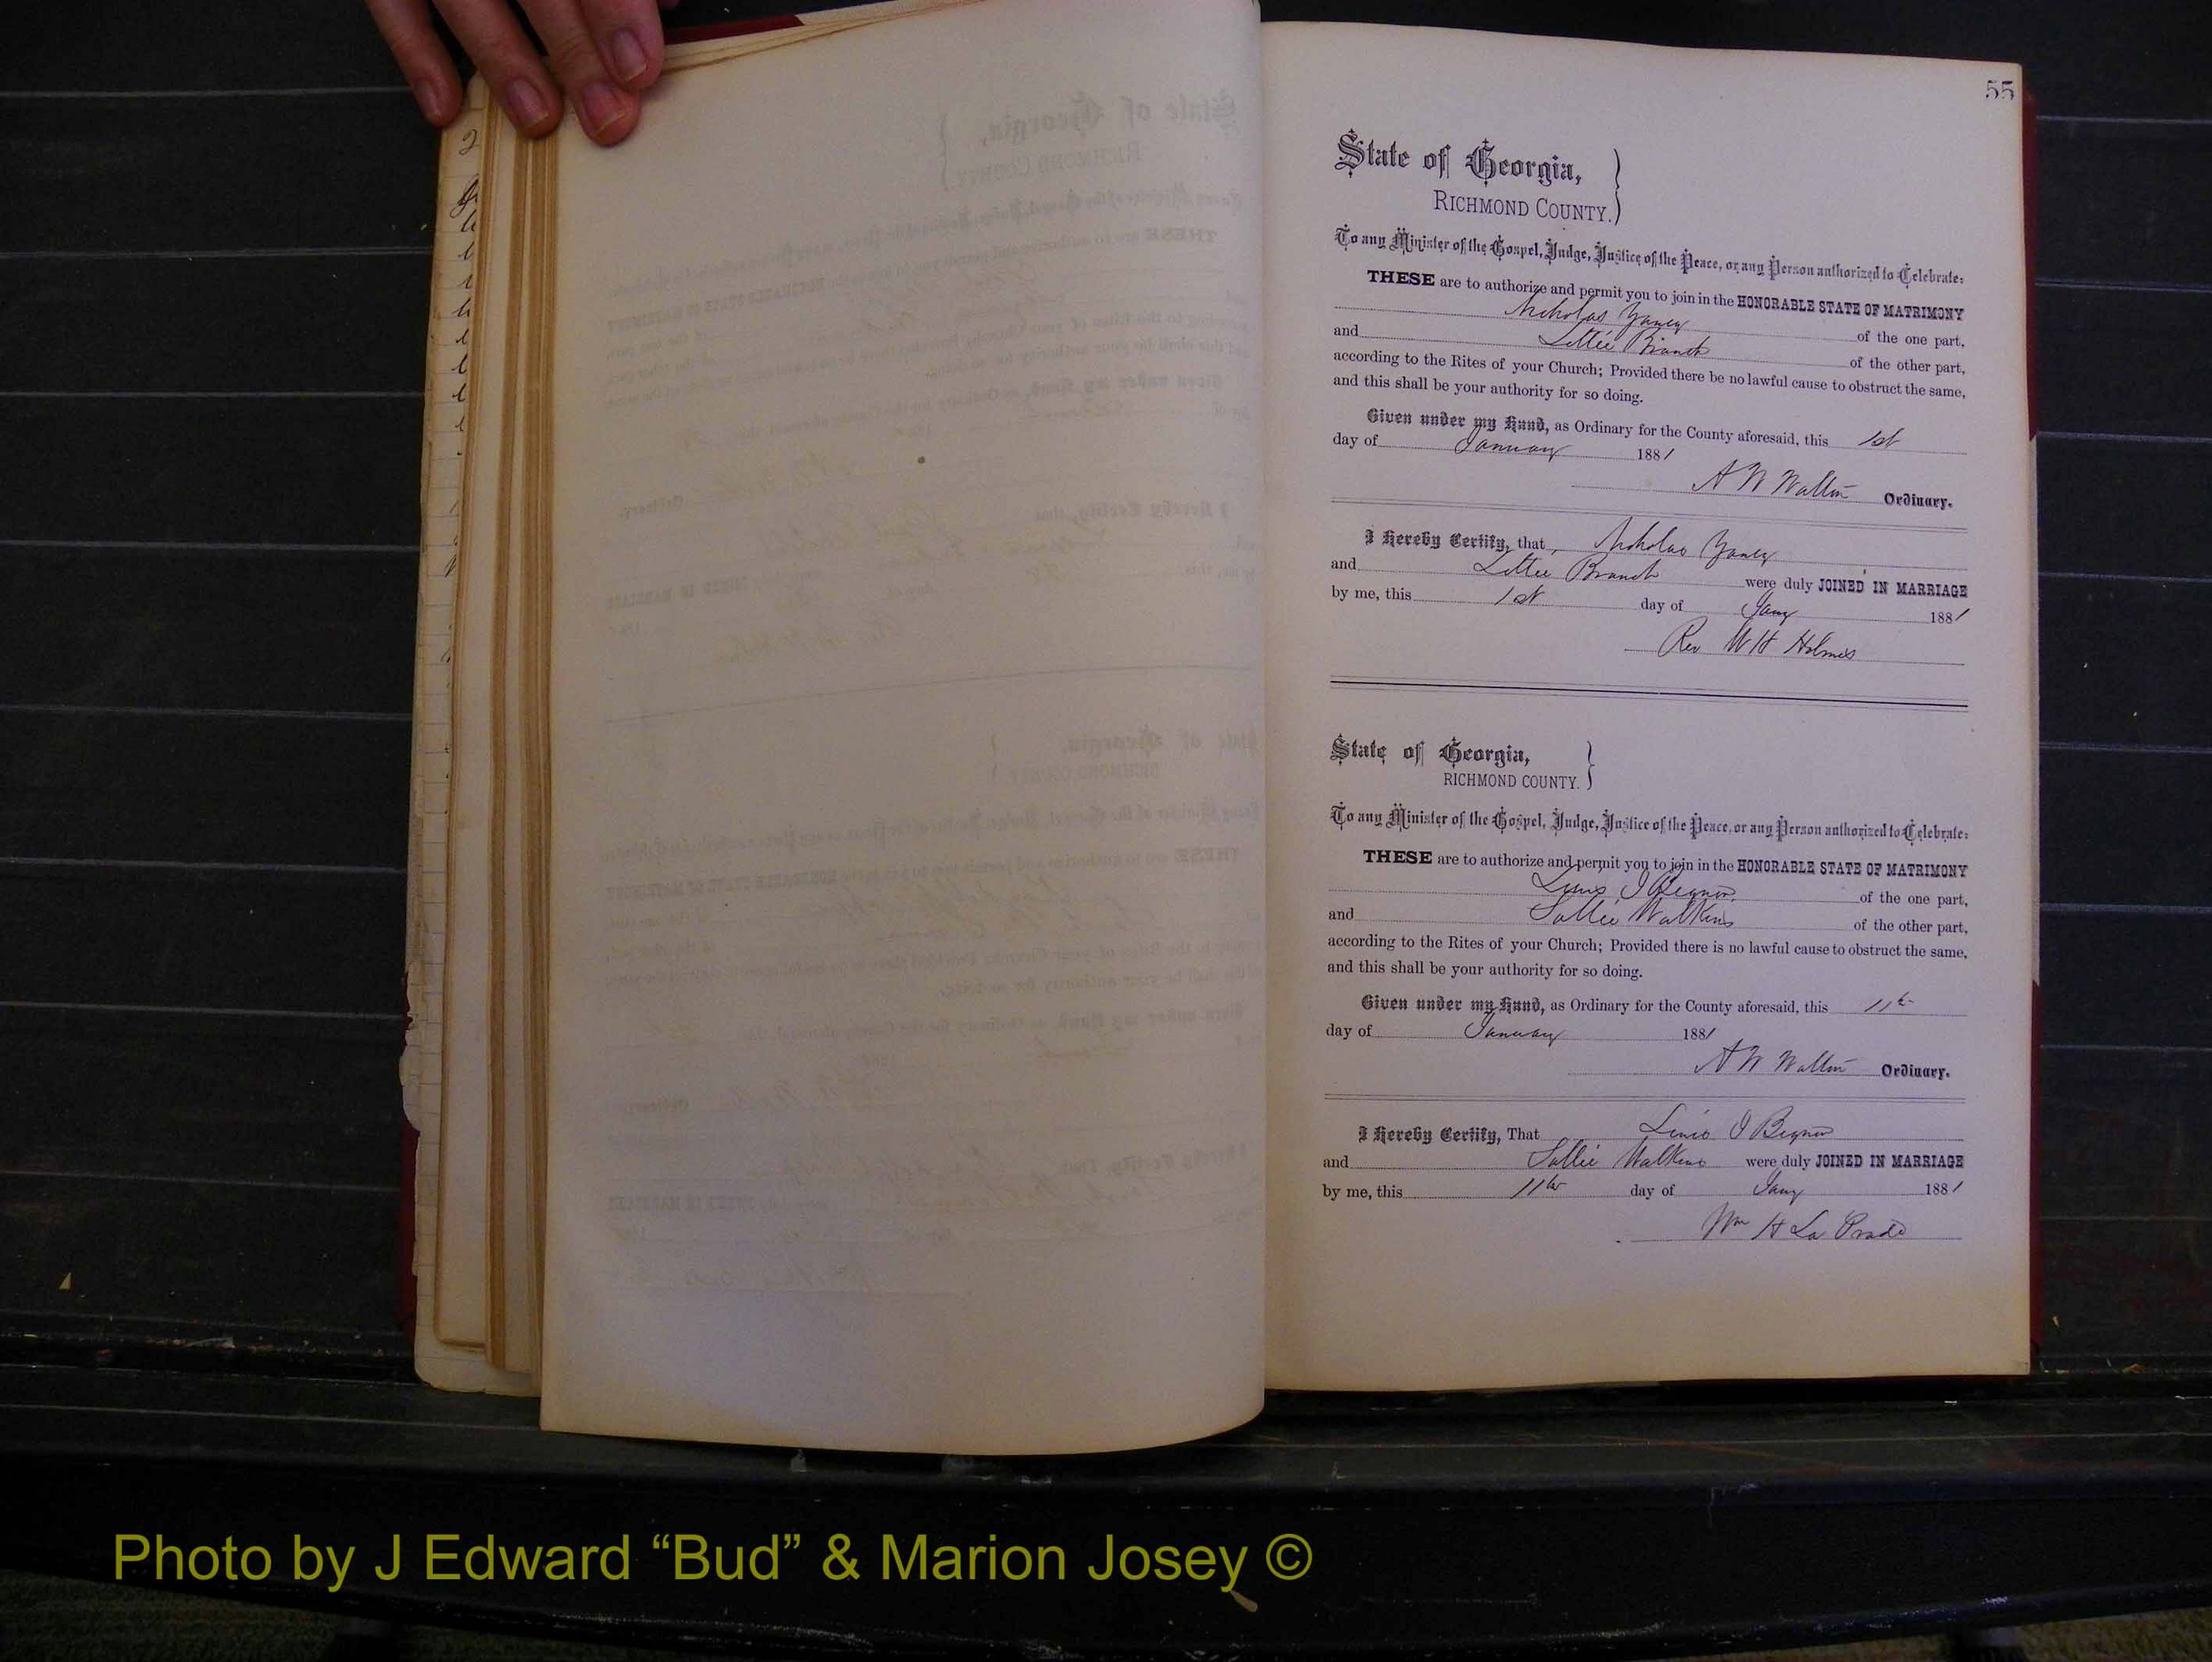 55
State of Georgia,
RICHMOND COUNTY.
To any Minister of the Gospel, Judge, Justice of the Peace, or any Person authorized to Celebrate:
THESE are to authorize and permit you to join in the HONORABLE STATE OF MATRIMONY
Nicholas Yancy of the one part,
and Lettie Branch of the other part,
according to the Rites of your Church; Provided there be no lawful cause to obstruct the same,
and this shall be your authority for so doing.
Given under my Hand, as Ordinary for the County aforesaid, this 1st
day of January 1881
A W Walton Ordinary.
I Hereby Certify, that Nicholas Yancy
and Lettie Branch were duly JOINED IN MARRIAGE
by me, this 1st day of Jany 1881
Rev W H Holmes
State of Georgia,
RICHMOND COUNTY.
To any Minister of the Gospel, Judge, Justice of the Peace, or any Person authorized to Celebrate:
THESE are to authorize and permit you to join in the HONORABLE STATE OF MATRIMONY
of the one part,
and Sallie Watkins of the other part,
according to the Rites of your Church; Provided there is no lawful cause to obstruct the same,
and this shall be your authority for so doing.
Given under my Hand, as Ordinary for the County aforesaid, this 11th
day of January 1881
A W Walton Ordinary.
I Hereby Certify, That
and Sallie Watkins were duly JOINED IN MARRIAGE
by me, this 11th day of Jany 1881
Wm H La Prade
Photo by J Edward “Bud” & Marion Josey ©